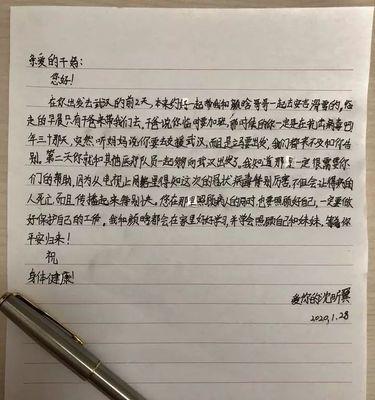 亲爱的干妈:
您好!
在你出发去武汉的前2天,本来约好一起带我和颢晗哥哥一起去安吉滑雪的,临
走的早晨只有干爸来带我们去,干爸说你临时要加班,
年三十那天,突然听妈妈说你要去支援武汉,而且立马要出发,我们都来不及和你告
别。第二天你就和其他医疗队员一起驰向武汉出发了。我知道那里一定很需要你
们的帮助,因为从电视上网路里得知这次的冠状病毒特别厉害,不但会让得病的
人死亡,而且传播起来特别快。您在那里照顾病人的同时,也要照顾好自己,一定要做
好保护自己的工作。我和颢晗都会在家里好好学习,并学会照顾自己和妹妹,等着你
平安归来!
祝
身体健康!
爱你的沈昕
2020.1.28